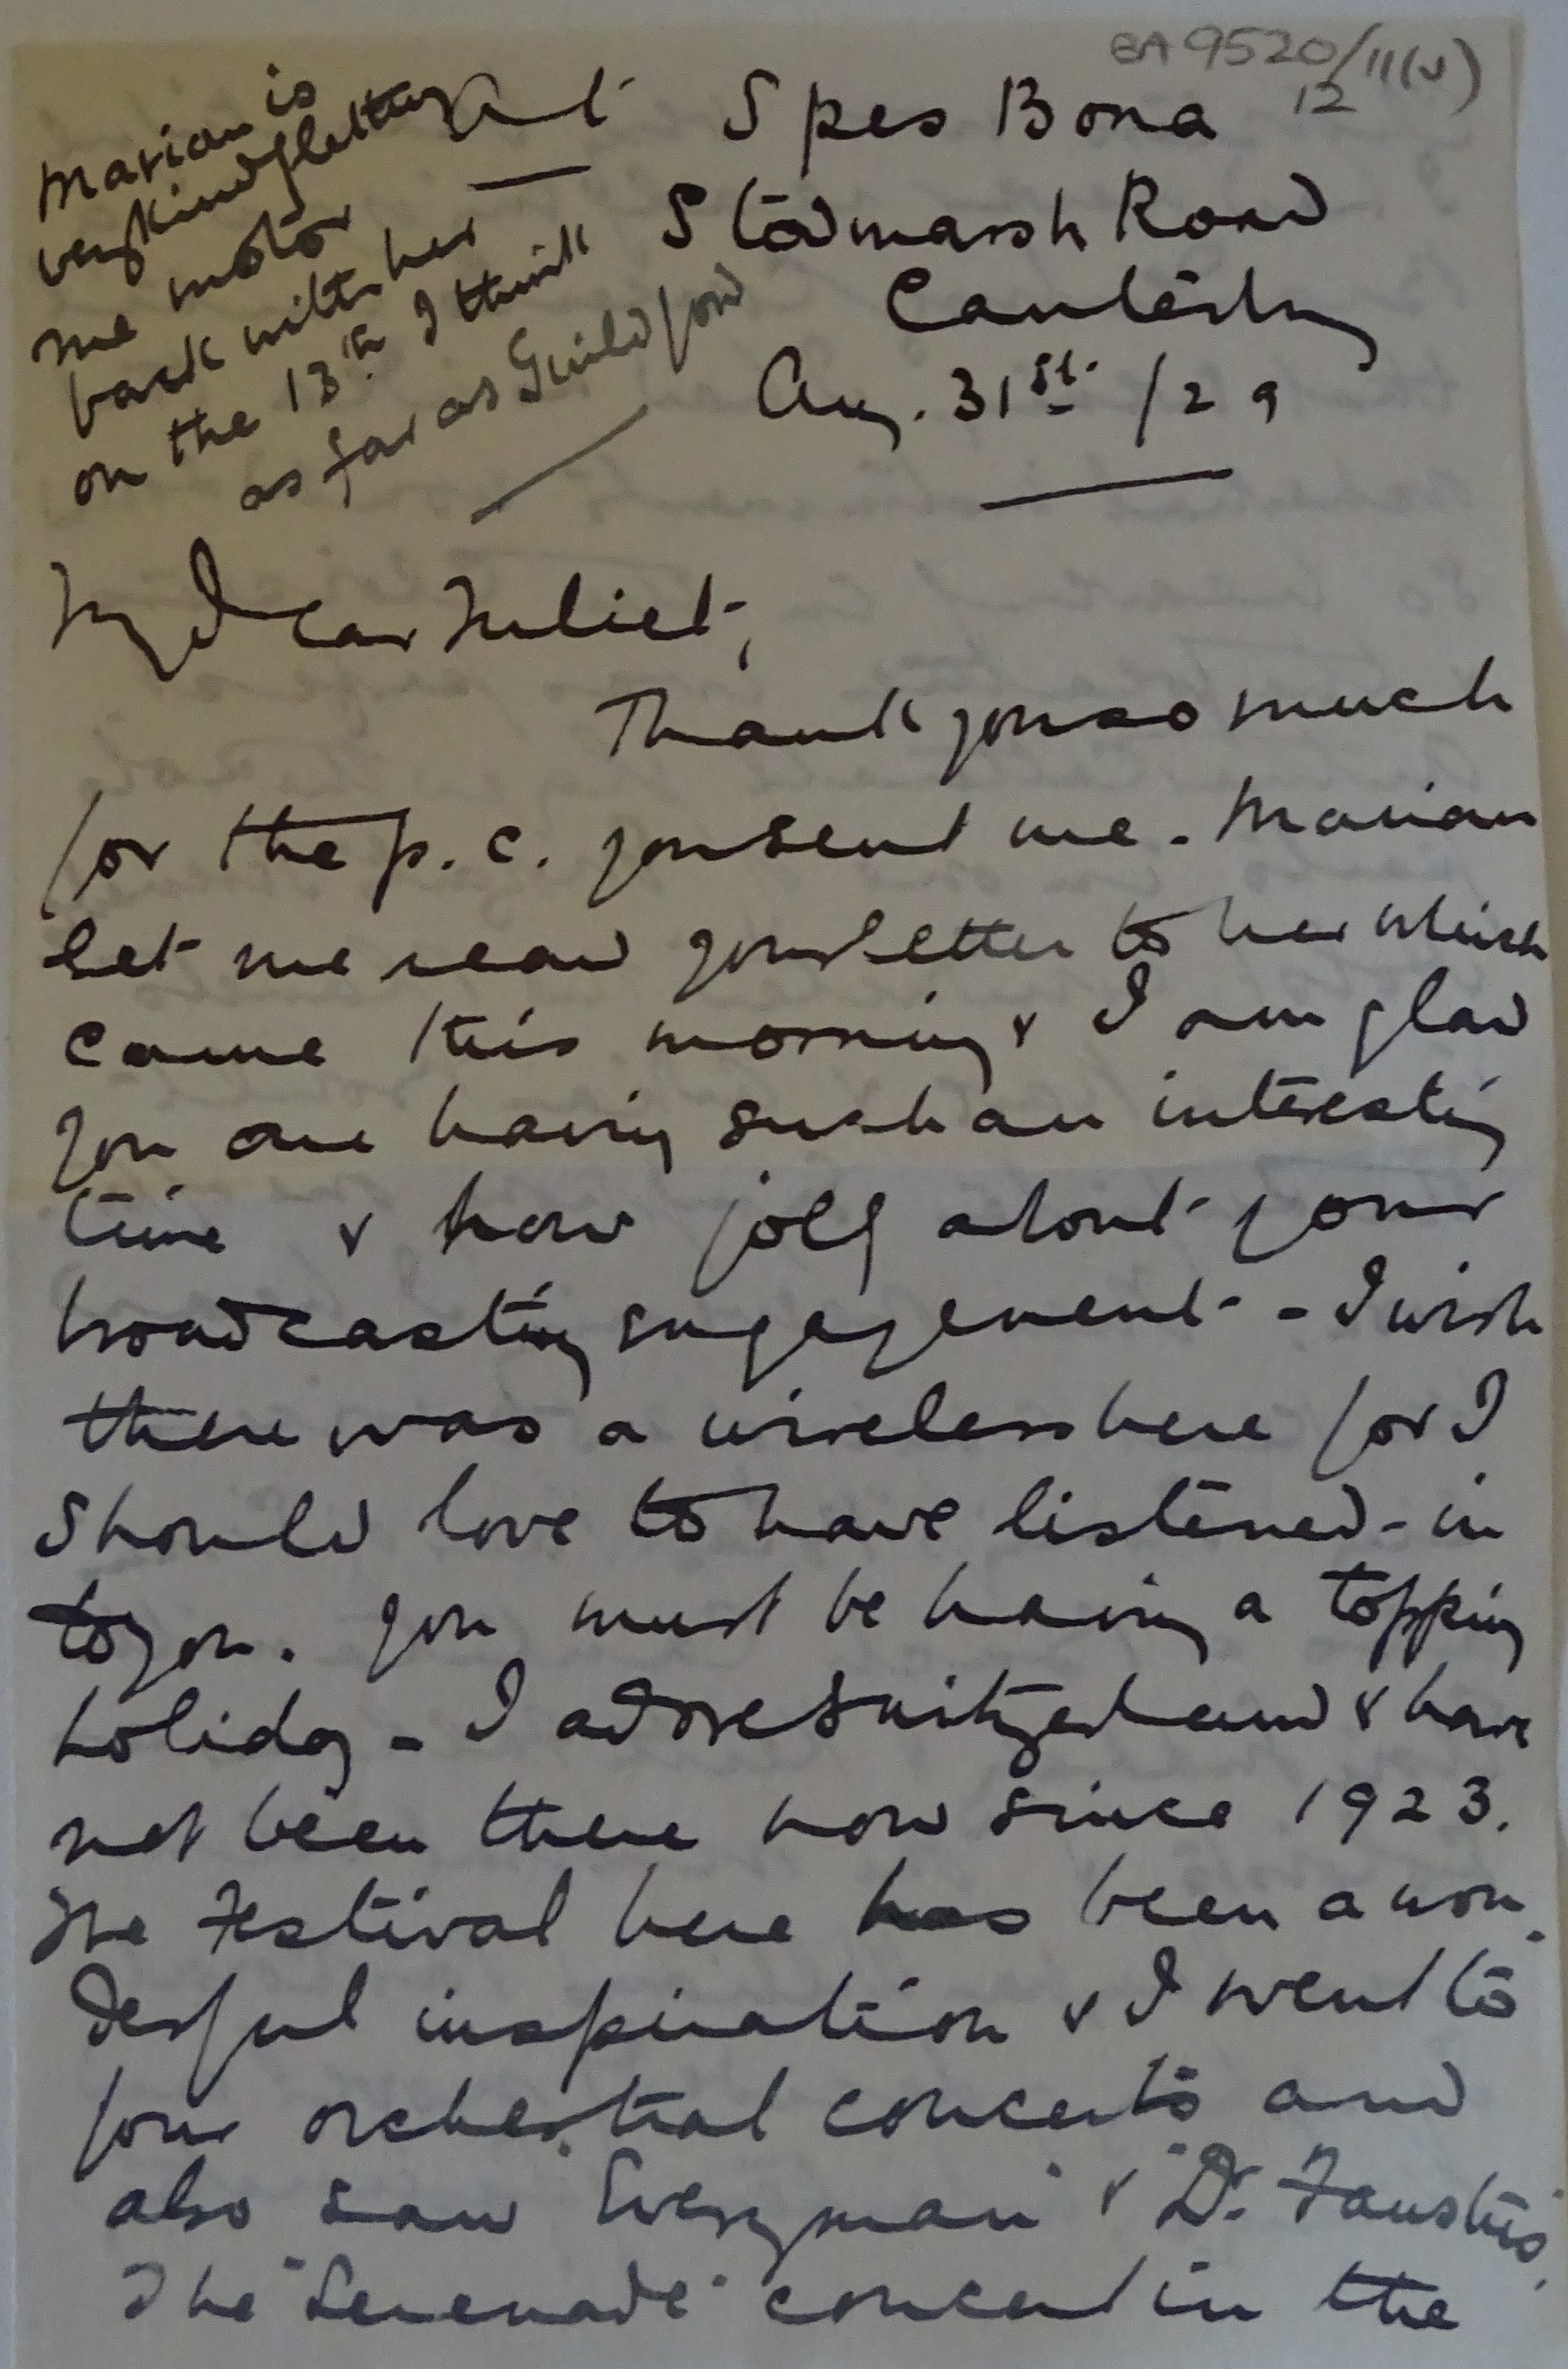 EA 9520/11(v)
12
at Spes Bona
Stodmarsh Road
Canterbury
Aug. 31st /29
Marian is
very kindly letting
me motor
back with her
on the 13th I think
as far as Guildford
My dear Juliet,
Thank you so much
for the p.c. you sent me. Marian
let me read your letter to her which
came this morning & I am glad
you are having such an interesting
time & how jolly about your
broadcasting engagement - I wish
there was a wireless here for I
should love to have listened-in
to you. You must be having a topping
holiday - I adore Switzerland & have
not been there now since 1923.
The Festival here has been a won-
derful inspiration & I went to
four orchestral concerts and
also saw "Everyman" & "Dr. Faustus".
The "Serenade" concert in the